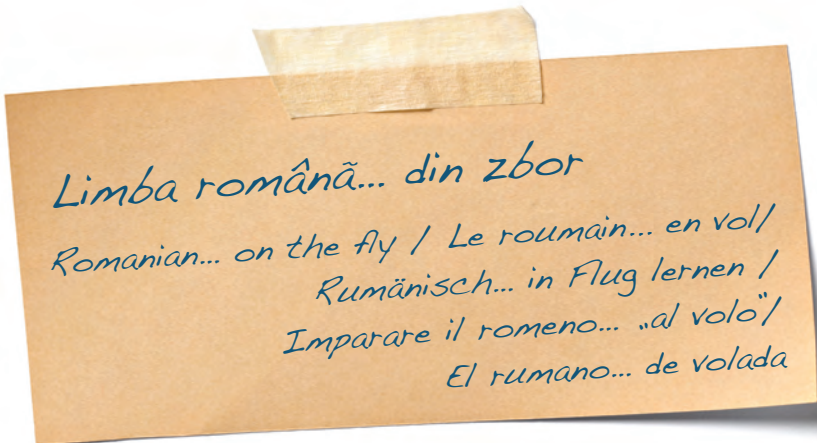 Limba românã... din zbor
Romanian... on the fly / Le roumain... en vol/
Rumänisch... in Flug lernen /
Imparare il romeno... „al volo"/
El rumano... de volada